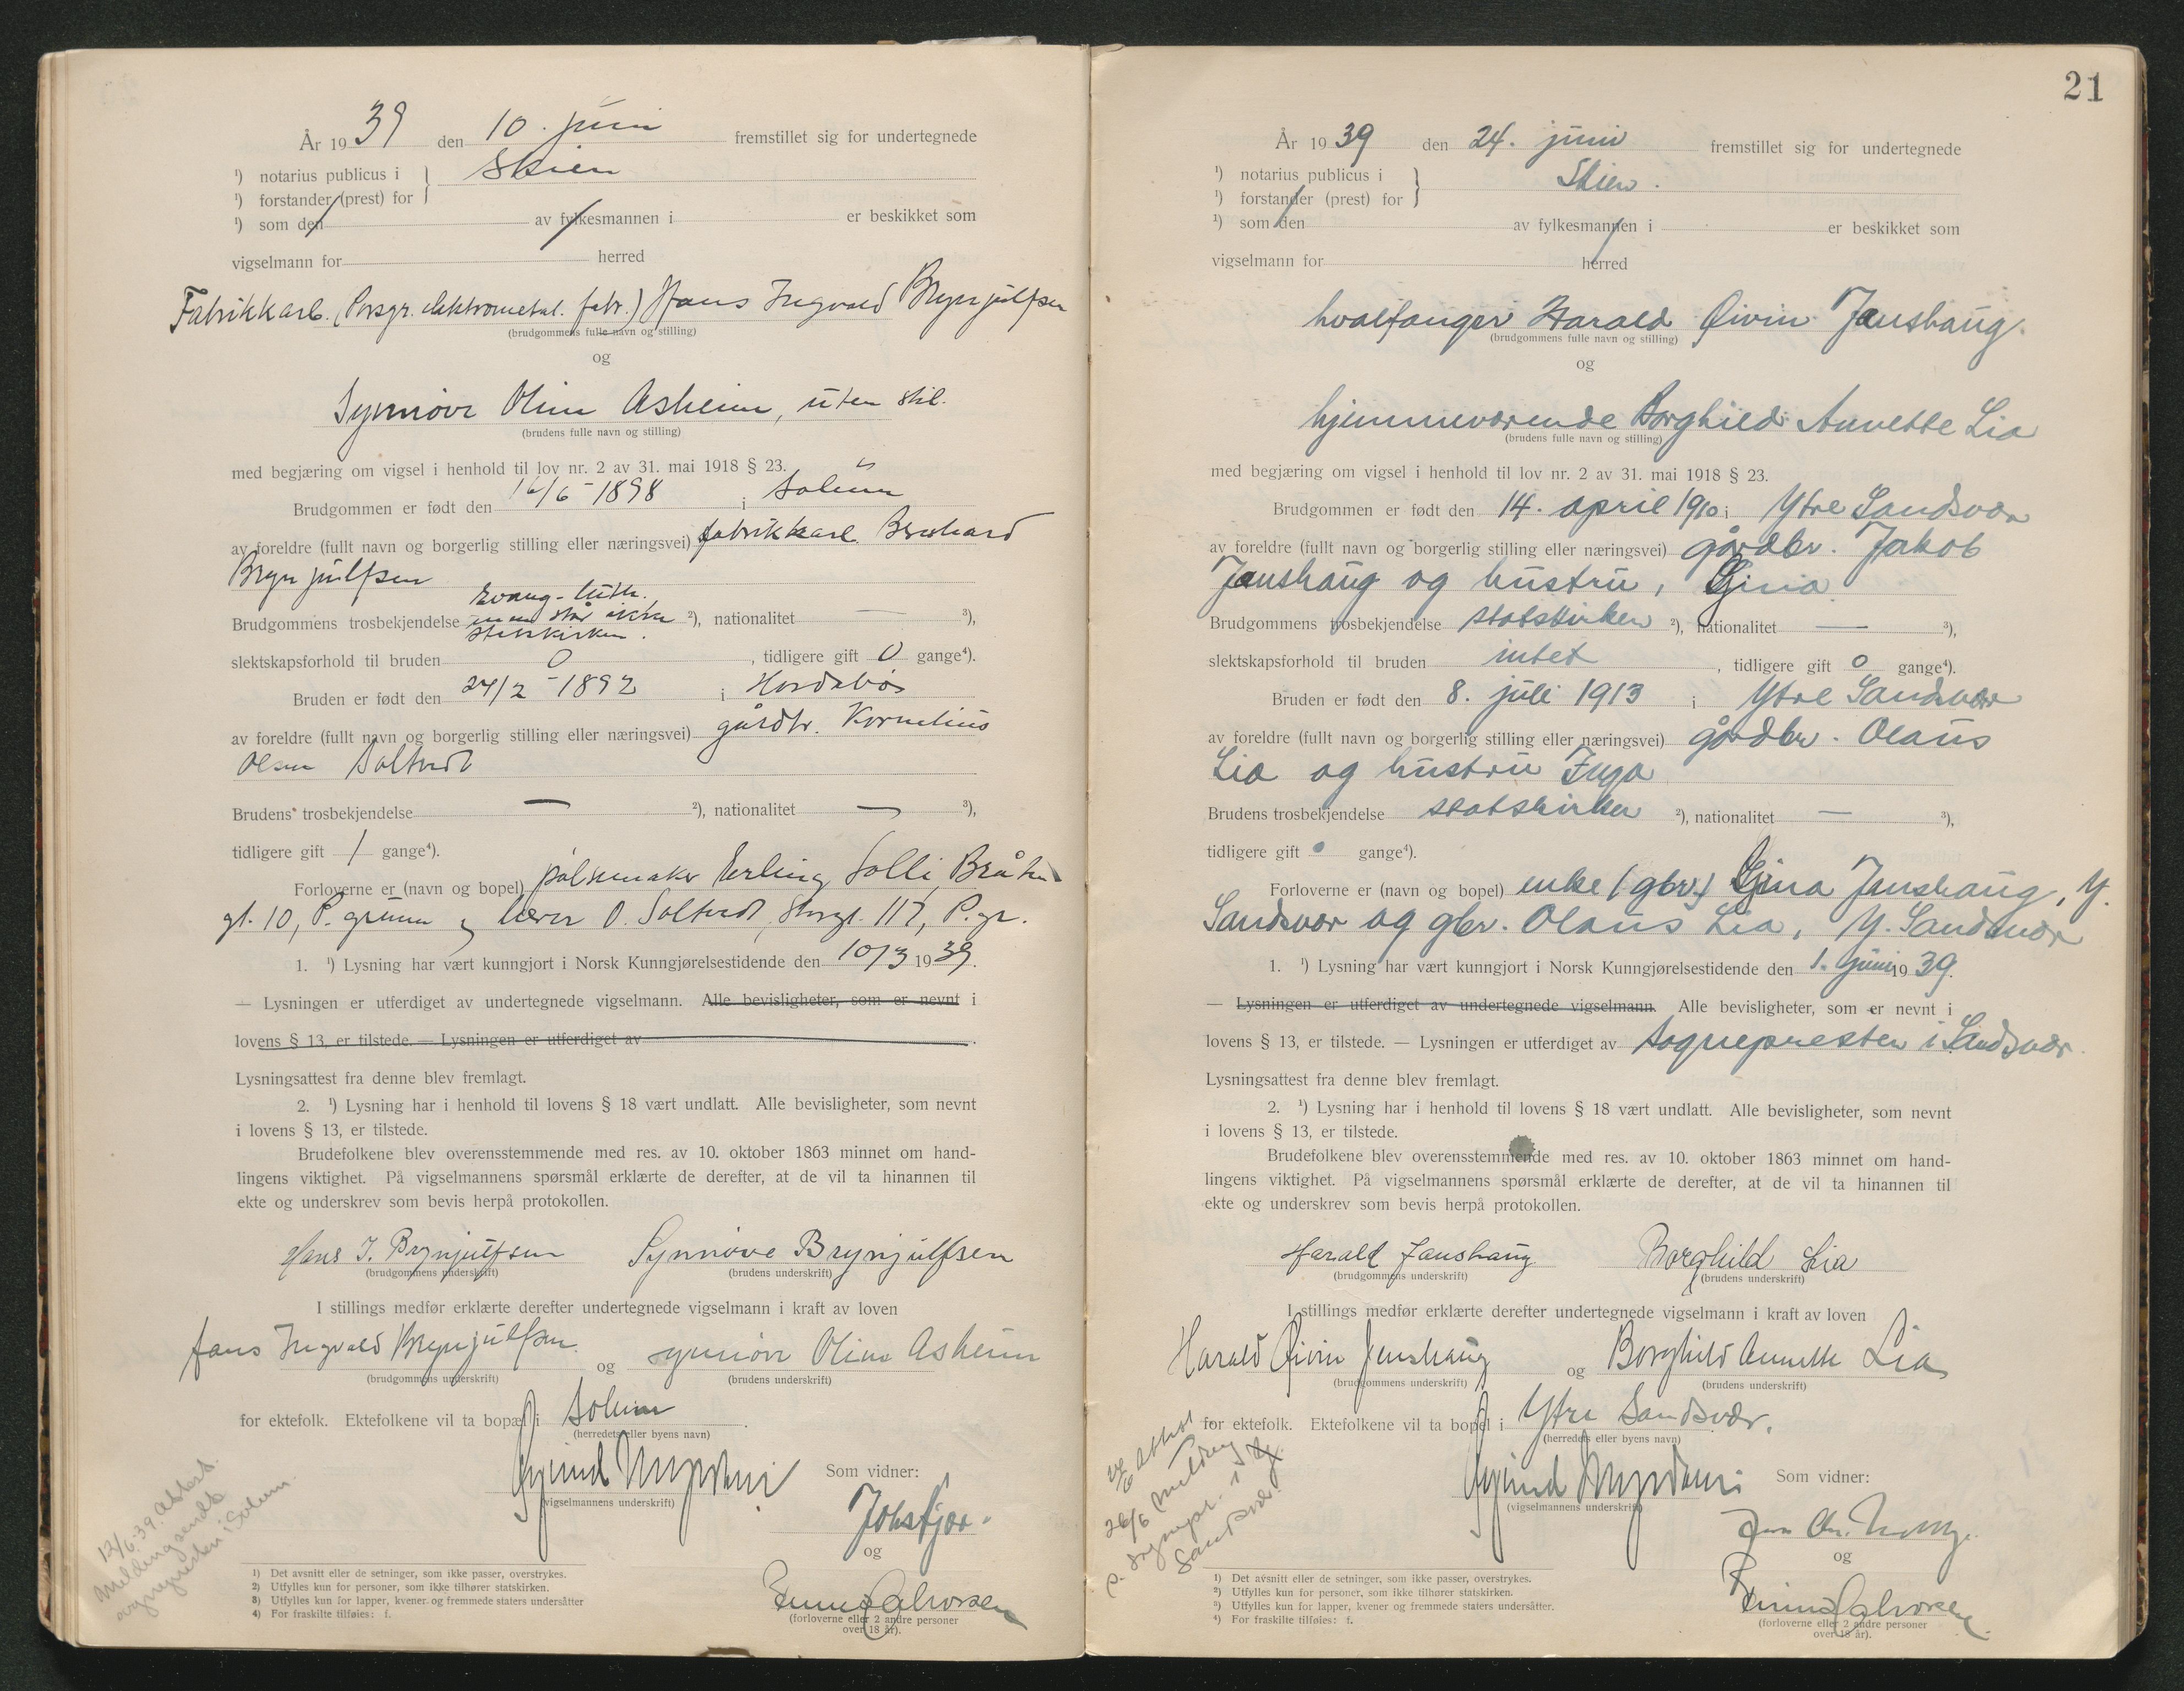 År 1939 den 10. juni fremstillet sig for undertegnede
¹) notarius publicus i } Skien
¹) forstander (prest) for
¹) som den av fylkesmannen i er beskikket som
vigselmann for herred
Fabrikkarb. (Porsgr. elektrometal. fabr.) Hans Ingvald Brynjulfsen
(brudgommens fulle navn og stilling)
og
Synnøve Oline Asheim, uten stil.
(brudens fulle navn og stilling)
med begjæring om vigsel i henhold til lov nr. 2 av 31. mai 1918 § 23.
Brudgommen er født den 16/6-1898 i Solum
av foreldre (fullt navn og borgerlig stilling eller næringsvei) fabrikkarb. Bernhard
Brynjulfsen
Evang.-luth.
Brudgommens trosbekjendelse men står ikke ²), nationalitet — ³),
statskirken.
slektskapsforhold til bruden 0, tidligere gift 0 gange⁴).
Bruden er født den 24/2-1892 i Hordabø
av foreldre (fullt navn og borgerlig stilling eller næringsvei) gårdbr. Kornelius
Olsen Soltvedt
Brudens trosbekjendelse — ²), nationalitet — ³),
tidligere gift 1 gange⁴).
Forloverne er (navn og bopel) pølsemaker Erling Solli, Bråten
gt. 10, P. grunn og lærer O. Soltvedt, Storgt. 117, P.gr.
1. ¹) Lysning har vært kunngjort i Norsk Kunngjørelsestidende den 10/3 1939.
— Lysningen er utferdiget av undertegnede vigselmann. Alle bevisligheter, som er nevnt i
lovens § 13, er tilstede. — Lysningen er utferdiget av
Lysningsattest fra denne blev fremlagt.
2. ¹) Lysning har i henhold til lovens § 18 vært undlatt. Alle bevisligheter, som nevnt
i lovens § 13, er tilstede.
Brudefolkene blev overensstemmende med res. av 10. oktober 1863 minnet om hand-
lingens viktighet. På vigselmannens spørsmål erklærte de derefter, at de vil ta hinannen til
ekte og underskrev som bevis herpå protokollen.
Hans I. Brynjulfsen Synnøve Brynjulfsen
(brudgommens underskrift) (brudens underskrift)
I stillings medfør erklærte derefter undertegnede vigselmann i kraft av loven
Hans Ingvald Brynjulfsen og Synnøve Oline Asheim
(brudgommens underskrift) (brudens underskrift)
for ektefolk. Ektefolkene vil ta bopæl i Solum
(herredets eller byens navn)
Som vidner:
(vigselmannens underskrift)
og
Halvorsen
(forloverne eller 2 andre personer
over 18 år).
12/6.39. Attest.
Melding sendt
sognepresten i Solum.
1) Det avsnitt eller de setninger, som ikke passer, overstrykes.
2) Utfylles kun for personer, som ikke tilhører statskirken.
3) Utfylles kun for lapper, kvener og fremmede staters undersåtter
4) For fraskilte tilføies: f.
21
År 1939 den 24. juni fremstillet sig for undertegnede
¹) notarius publicus i } Skien.
¹) forstander (prest) for
¹) som den av fylkesmannen i er beskikket som
vigselmann for herred
hvalfanger Harald Øivin Jenshaug.
(brudgommens fulle navn og stilling)
og
hjemmeværende Borghild Annette Lia
(brudens fulle navn og stilling)
med begjæring om vigsel i henhold til lov nr. 2 av 31. mai 1918 § 23.
Brudgommen er født den 14. april 1910 i Ytre Sandsvær
av foreldre (fullt navn og borgerlig stilling eller næringsvei) gårdbr. Jakob
Jenshaug og hustru, Gina
Brudgommens trosbekjendelse statskirken ²), nationalitet — ³),
slektskapsforhold til bruden intet, tidligere gift 0 gange⁴).
Bruden er født den 8. juli 1913 i Ytre Sandsvær
av foreldre (fullt navn og borgerlig stilling eller næringsvei) gårdbr. Olaus
Lia og hustru Inga
Brudens trosbekjendelse statskirken ²), nationalitet — ³),
tidligere gift 0 gange⁴).
Forloverne er (navn og bopel) enke (gbr.) Gina Jenshaug, Y.
Sandsvær og gbr. Olaus Lia, Y. Sandsvær
1. ¹) Lysning har vært kunngjort i Norsk Kunngjørelsestidende den 1. juni 1939.
— Lysningen er utferdiget av undertegnede vigselmann. Alle bevisligheter, som er nevnt i
lovens § 13, er tilstede. — Lysningen er utferdiget av sognepresten i Sandsvær.
Lysningsattest fra denne blev fremlagt.
2. ¹) Lysning har i henhold til lovens § 18 vært undlatt. Alle bevisligheter, som nevnt
i lovens § 13, er tilstede.
Brudefolkene blev overensstemmende med res. av 10. oktober 1863 minnet om hand-
lingens viktighet. På vigselmannens spørsmål erklærte de derefter, at de vil ta hinannen til
ekte og underskrev som bevis herpå protokollen.
Harald Jenshaug Borghild Lia
(brudgommens underskrift) (brudens underskrift)
I stillings medfør erklærte derefter undertegnede vigselmann i kraft av loven
Harald Øivin Jenshaug og Borghild Annette Lia
(brudgommens underskrift) (brudens underskrift)
for ektefolk. Ektefolkene vil ta bopel i Ytre Sandsvær.
(herredets eller byens navn)
Som vidner:
(vigselmannens underskrift)
og
Halvorsen
(forloverne eller 2 andre personer
over 18 år).
24/6 Attest.
26/6 Melding
sognepr. i
Sandsvær.
1) Det avsnitt eller de setninger, som ikke passer, overstrykes.
2) Utfylles kun for personer, som ikke tilhører statskirken.
3) Utfylles kun for lapper, kvener og fremmede staters undersåtter.
4) For fraskilte tilføies: f.